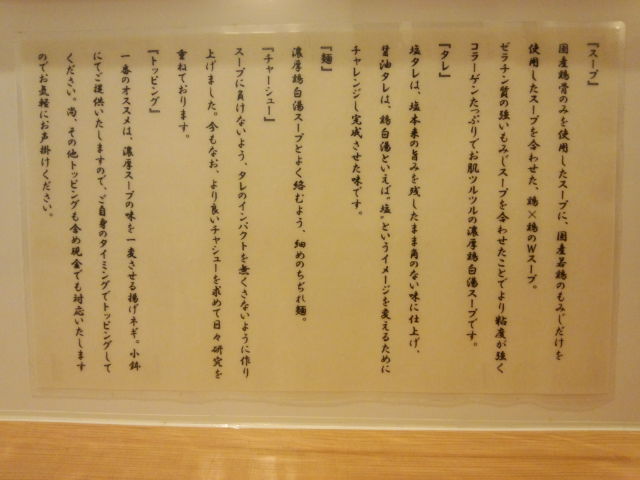 『スープ』
国産鶏骨のみを使用したスープに、国産若鶏のもみじだけを
使用したスープを合わせた、鶏×鶏のWスープ。
ゼラチン質の強いもみじスープを合わせたことでより粘度が強く
コラーゲンたっぷりでお肌ツルツルの濃厚鶏白湯スープです。
『タレ』
塩タレは、塩本来の旨みを残したまま角のない味に仕上げ、
醤油タレは、鶏白湯といえば"塩"というイメージを変えるために
チャレンジし完成させた味です。
『麺』
濃厚鶏白湯スープとよく絡むよう、細めのちぢれ麺。
『チャーシュー』
スープに負けないよう、タレのインパクトを無くさないように作り
上げました。今もなお、より良いチャシューを求めて日々研究を
重ねております。
『トッピング』
一番のオススメは、濃厚スープの味を一変させる揚げネギ。小鉢
にてご提供いたしますので、ご自身のタイミングでトッピングして
ください。尚、その他トッピングも含め現金でも対応いたします
のでお気軽にお声掛けください。